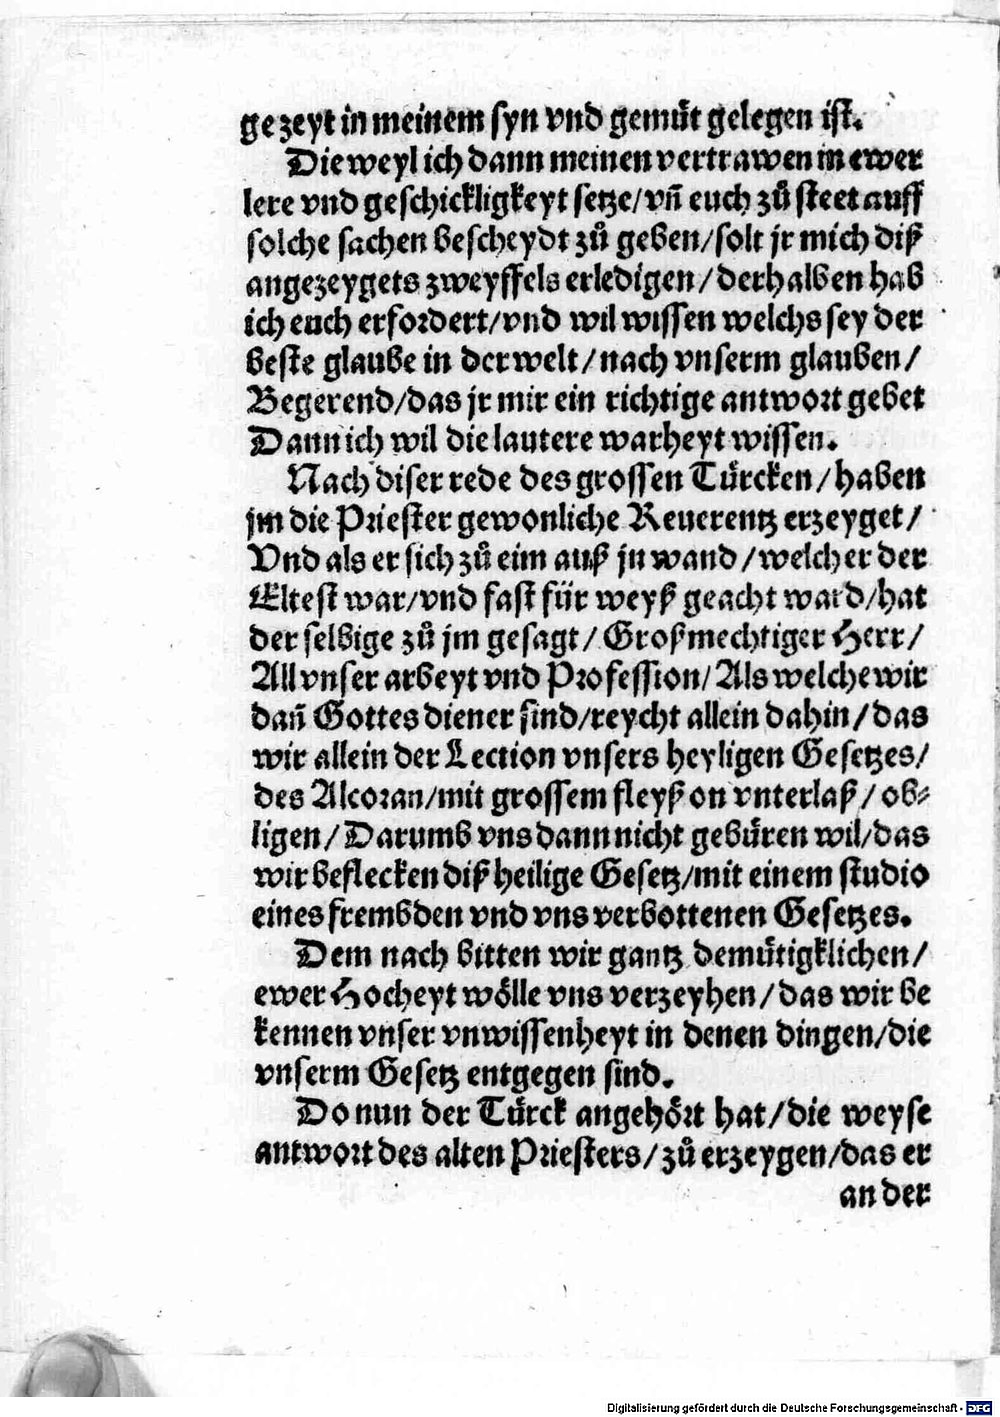 ge zeyt in meinem syn vnd gemüt gelegen ist.
Die weyl ich dann meinen vertrawen in ewer
lere vnd geschickligkeyt setze/vñ euch zů steet auff
solche sachen bescheydt zů geben/solt jr mich diß
angezeygets zweyffels erledigen/derhalben hab
ich euch erfordert/vnd wil wissen welchs sey der
beste glaube in der welt/nach vnserm glauben/
Begerend/das jr mir ein richtige antwort gebet
Dann ich wil die lautere warheyt wissen.
Nach diser rede des grossen Türcken/haben
jm die Priester gewonliche Reuerentz erzeyget/
Vnd als er sich zů eim auß jn wand/welcher der
Eltest war/vnd fast für weyß geacht ward/hat
der selbige zů jm gesagt/Großmechtiger Herr/
All vnser arbeyt vnd Profession/Als welche wir
dañ Gottes diener sind/reycht allein dahin/das
wir allein der Lection vnsers heyligen Gesetzes/
des Alcoran/mit grossem fleyß on vnterlaß/ob⸗
ligen/Darumb vns dann nicht gebüren wil/das
wir beflecken diß heilige Gesetz/mit einem studio
eines frembden vnd vns verbottenen Gesetzes.
Dem nach bitten wir gantz demütigklichen/
ewer Hocheyt wölle vns verzeyhen/das wir be
kennen vnser vnwissenheyt in denen dingen/die
vnserm Gesetz entgegen sind.
Do nun der Türck angehört hat/die weyse
antwort des alten Priesters/zů erzeygen/das er
an der
Digitalisierung gefördert durch die Deutsche Forschungsgemeinschaft - DFG